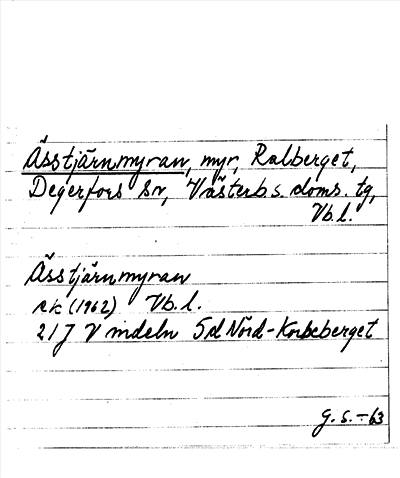 Ässtjärnmyran, myr, Ralberget,
Degerfors sn, Västerb. s. doms. tg,
Vb. l.
Ässtjärnmyran
rk (1962) Vb. l.
21 J Vindeln 5d Nörd-Korbeberget
G. S. -63